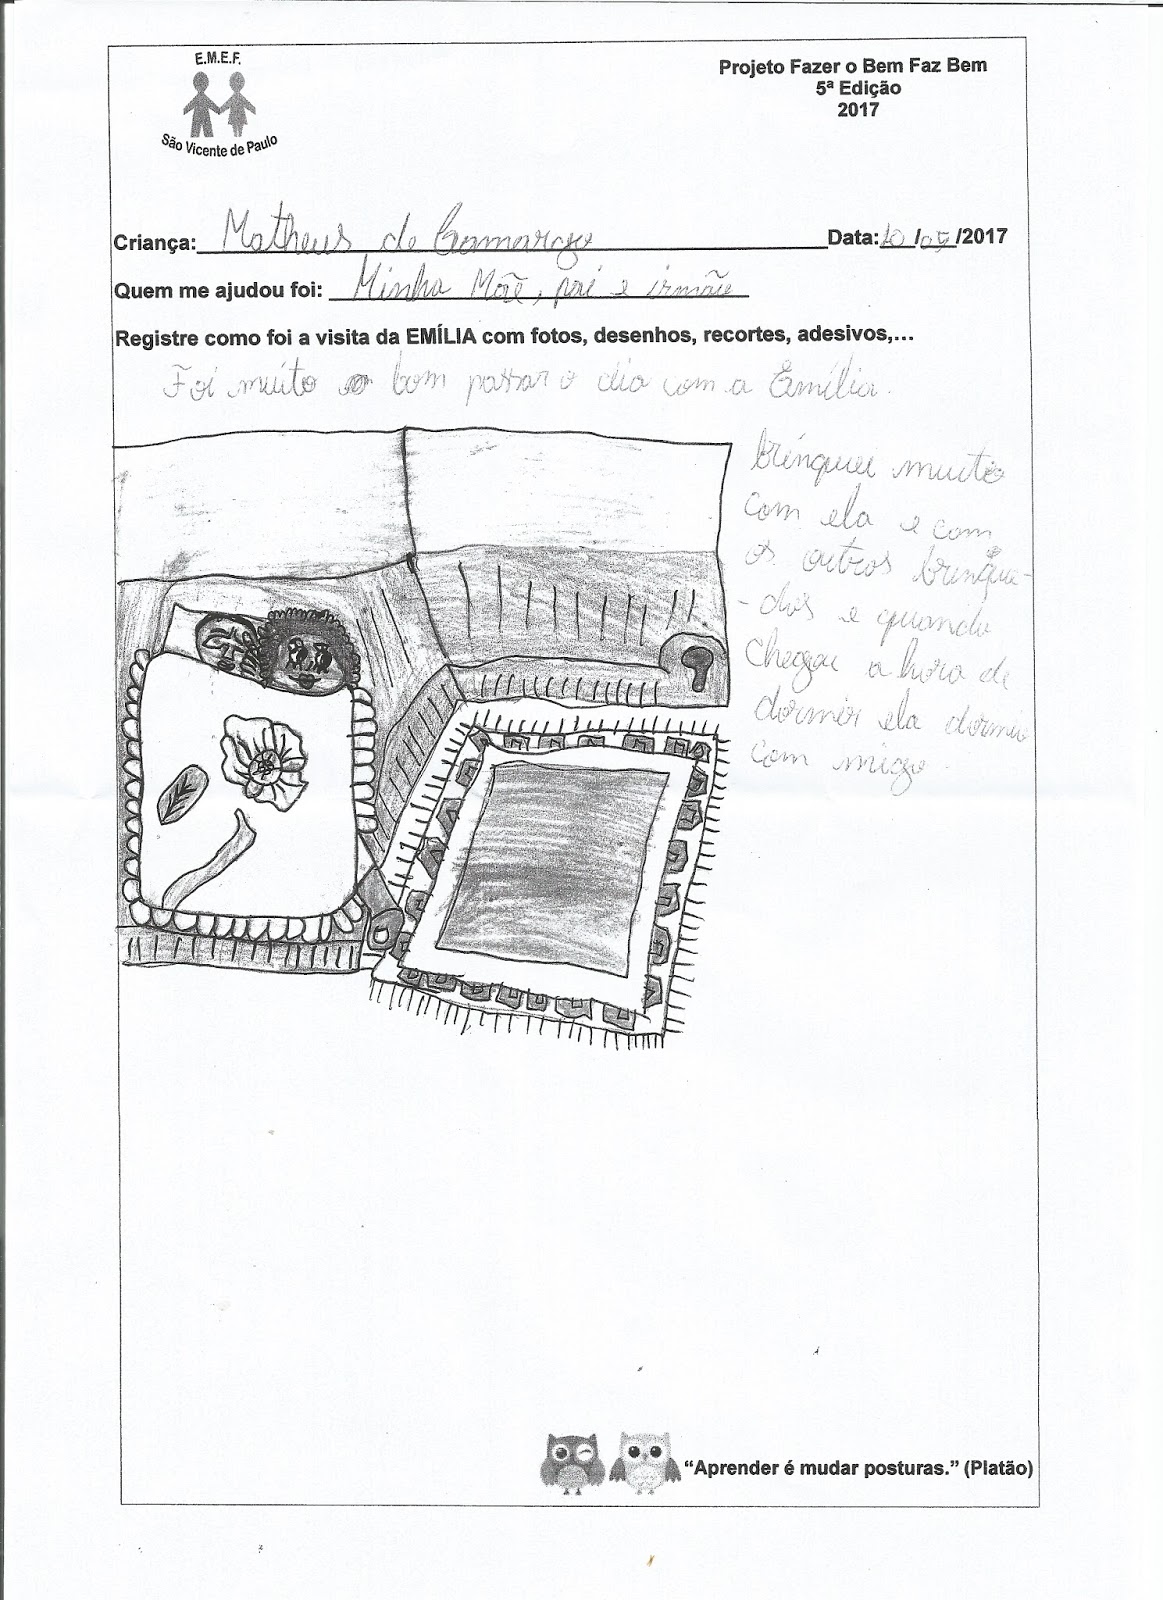 E.M.E.F.
São Vicente de Paulo
Projeto Fazer o Bem Faz Bem
5ª Edição
2017
Criança: Matheus de Camargo Data: 10/05/2017
Quem me ajudou foi: Minha Mãe, pai e irmão
Registre como foi a visita da EMÍLIA com fotos, desenhos, recortes, adesivos,...
Foi muito bom passar o dia com a Emília.
brinquei muito
com ela e com
os outros brinque-
-dos e quando
chegou a hora de
dormir ela dormiu
com migo.
“Aprender é mudar posturas.” (Platão)